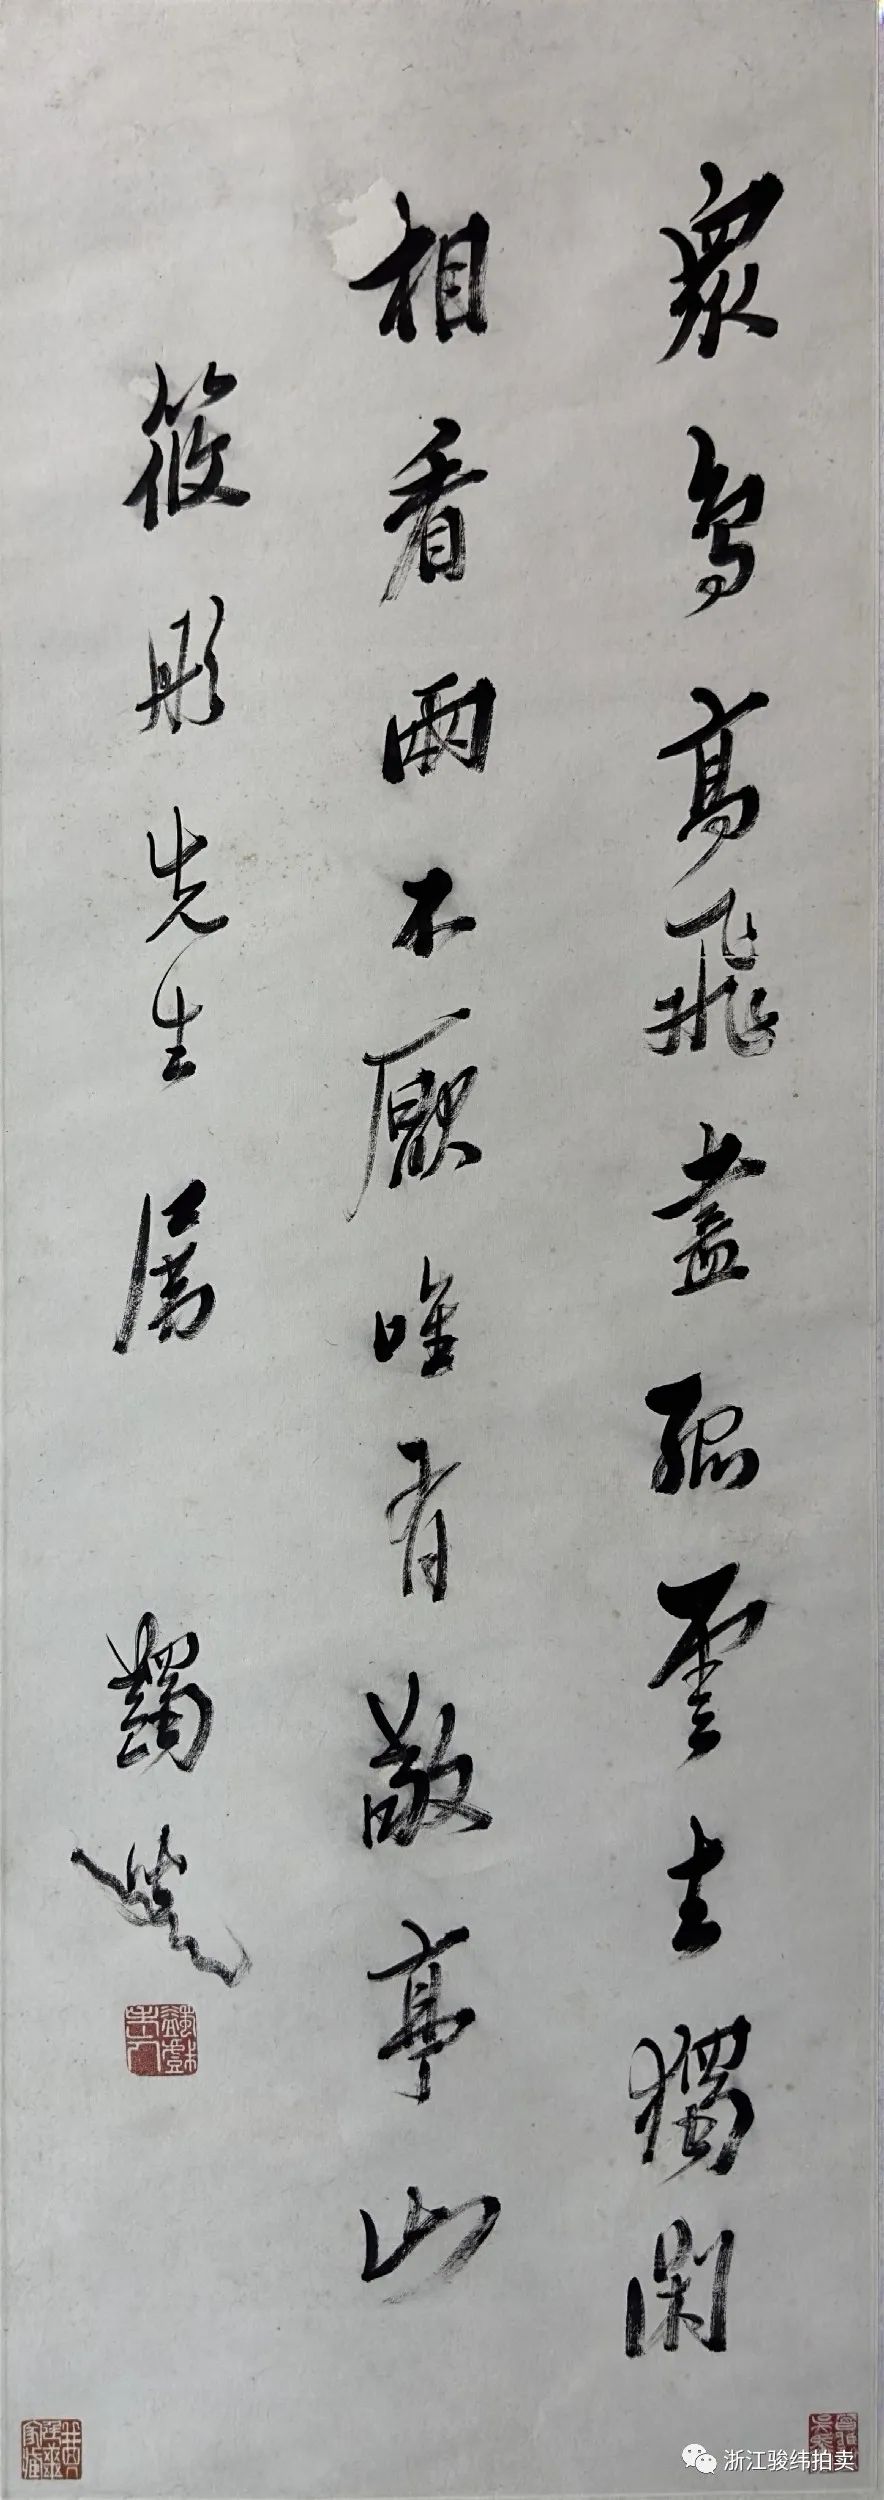 眾鳥高飛盡孤雲去獨閑
相看兩不厭唯有敬亭山
筱彤先生屬 蠲叟
蠲戲老人
浙江骏纬拍卖